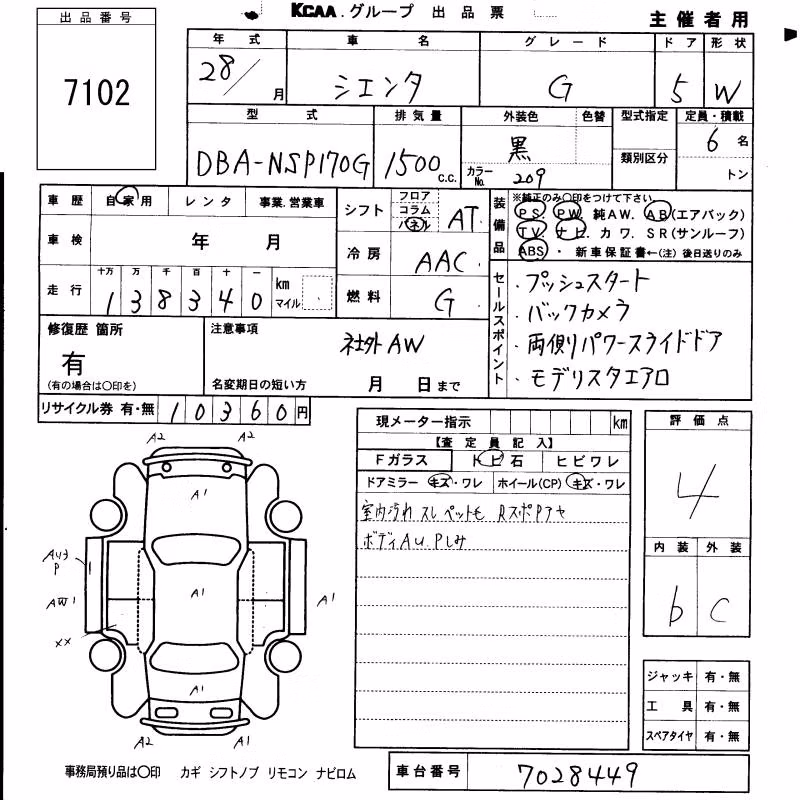 KCAA.グループ 出品票
主催者用
出品番号
7102
年式 車名 グレード ドア 形状
28/月 シエンタ G 5 W
型式 排気量 外装色 色替 型式指定 定員・積載
DBA-NSP170G 1500c.c. 黒 6名
カラーNo. 209 類別区分 トン
車歴 自家用 レンタ 事業.営業車
シフト フロア コラム パネル AT
装備品 ※純正のみ〇印をつけて下さい。
PS PW 純AW. AB(エアバック)
TV. ナビ カワ. SR(サンルーフ)
ABS ・ 新車保証書←(注) 後日送りのみ
車検 年 月
冷房 AAC
走行 十万 万 千 百 十 一 km マイル
1 3 8 3 4 0
燃料 G
セールスポイント
・プッシュスタート
・バックカメラ
・両側パワースライドドア
・モデリスタエアロ
修復歴 箇所
有
(有の場合は〇印を)
注意事項
社外AW
名変期日の短い方 月 日まで
リサイクル券 有・無 10360円
現メーター指示 km
【査定員記入】
Fガラス トビ石 ヒビワレ
ドアミラー キズ・ワレ ホイール(CP) キズ・ワレ
室内汚れ スレ ペット毛 RスポPアヤ
ボディAu.Pしみ
評価点
4
内装 外装
b C
A2 A2
A1
Au3
P
AW1
A1
A1
XX
A1
A2 A1
ジャッキ 有・無
工具 有・無
スペアタイヤ 有・無
事務局預り品は〇印 カギ シフトノブ リモコン ナビロム
車台番号 7028449